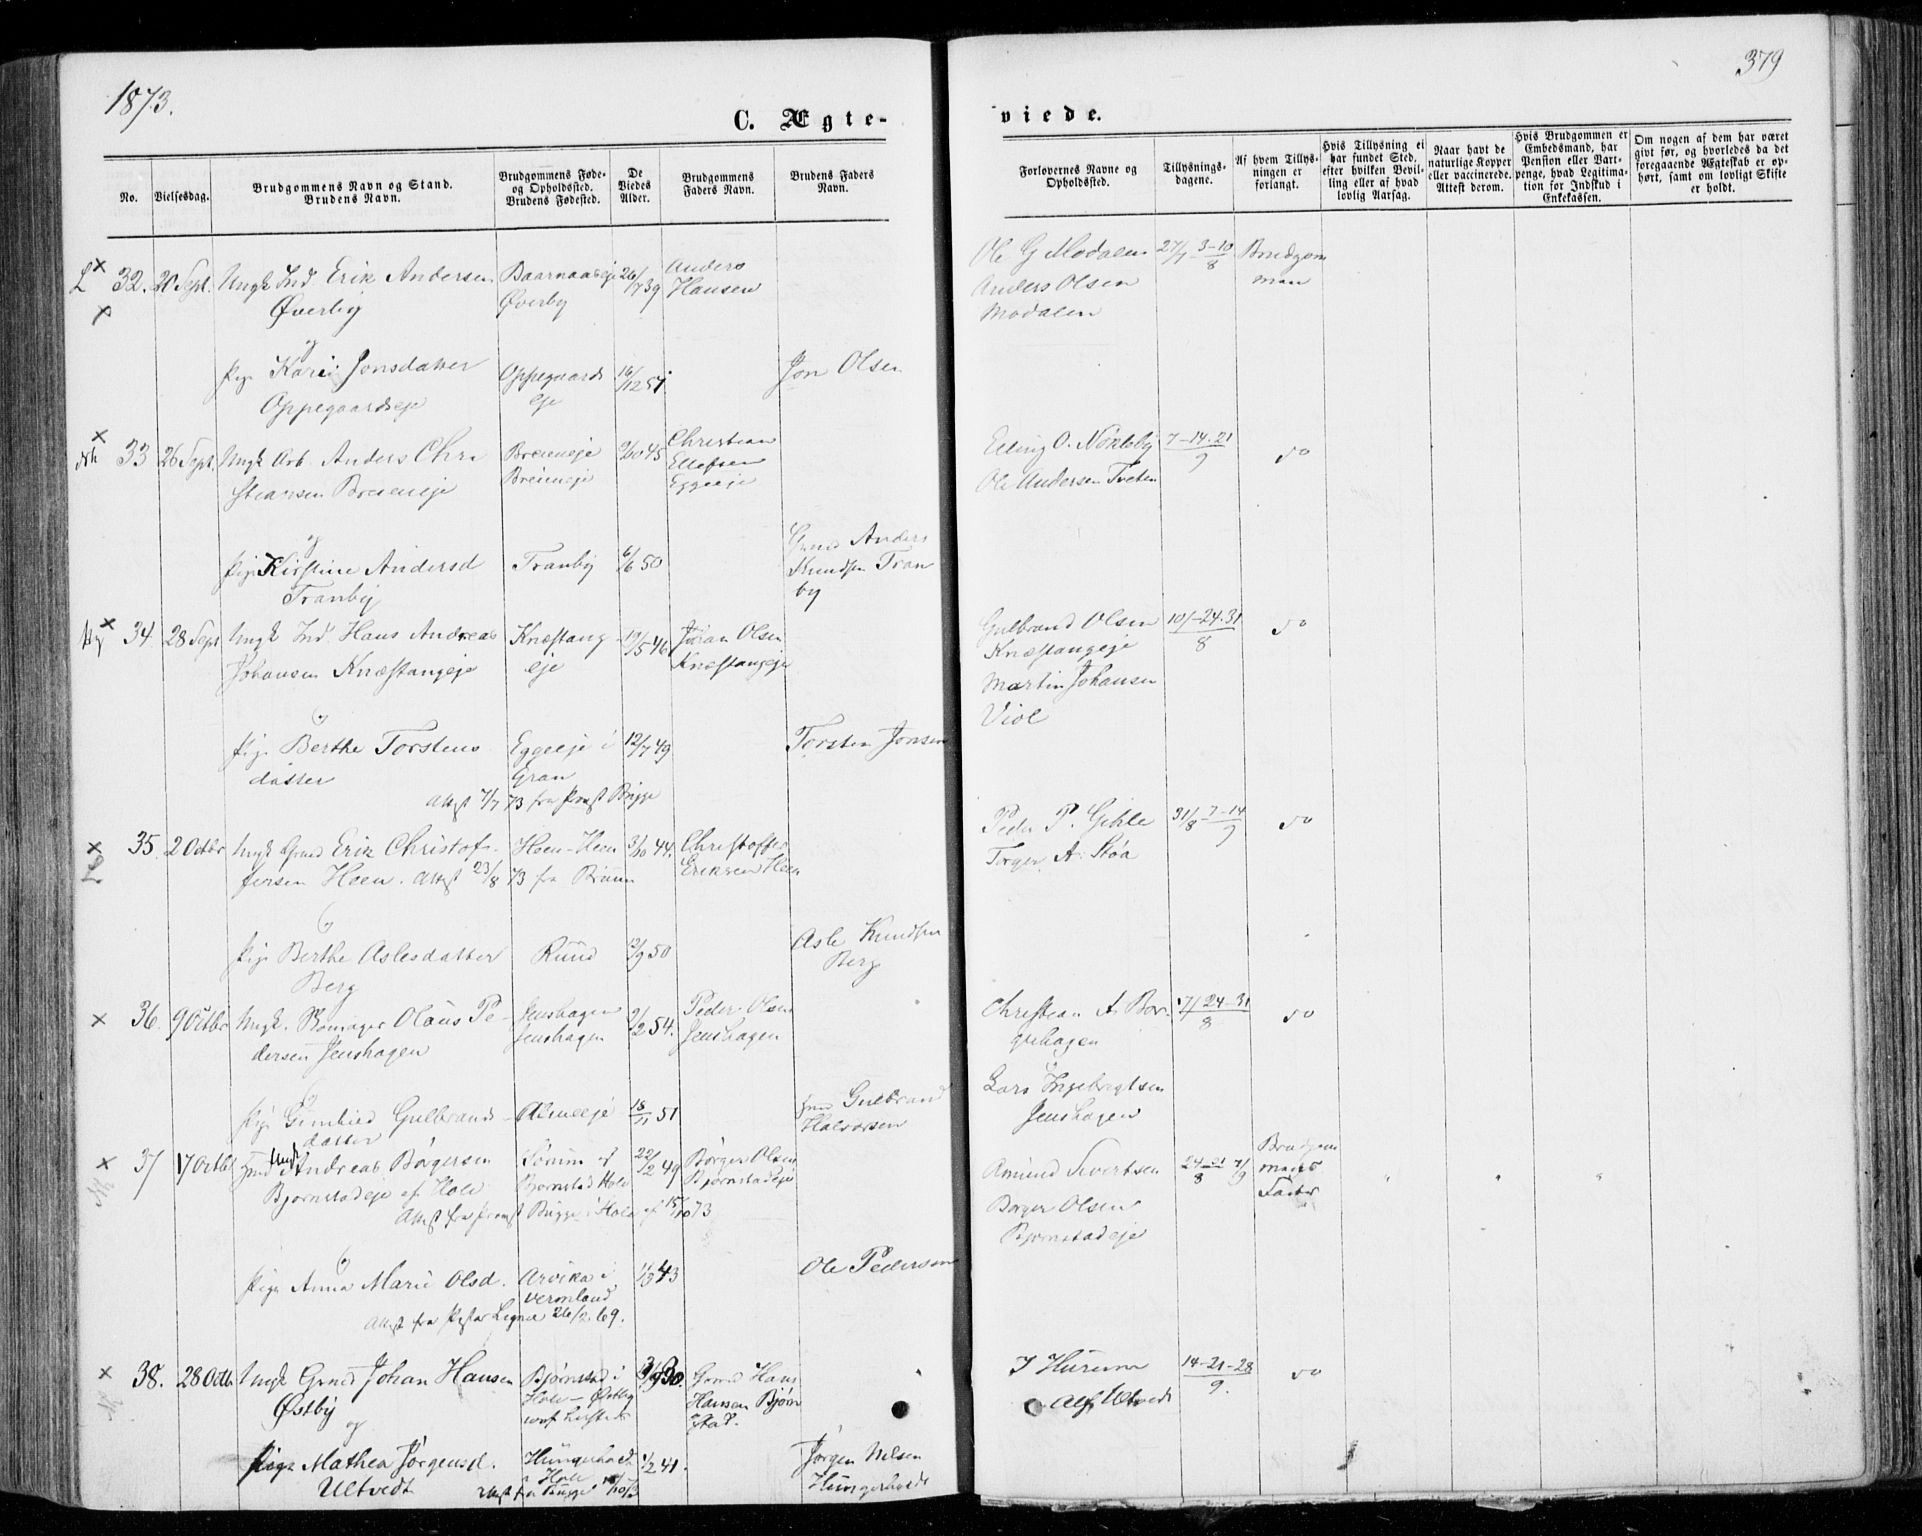 1873.
379
C. Ægte-
viede.
No.
Vielsesdag.
Brudgommens Navn og Stand.
Brudens Navn.
Brudgommens Føde-
og Opholdssted.
Brudens Fødested.
De
Viedes
Alder.
Brudgommens
Faders Navn.
Brudens Faders
Navn.
Forlovernes Navne og
Opholdssted.
Tillysnings-
dagene.
Af hvem Tillys-
ningen er
forlangt.
Hvis Tillysning ei
har fundet Sted,
efter hvilken Bevil-
ling eller af hvad
lovlig Aarsag.
Naar havt de
naturlige Kopper
eller vaccinerede.
Attest derom.
Hvis Brudgommen er
Embedsmand, har
Pension eller Vart-
penge, hvad Legitima-
tion for Indskud i
Enkekassen.
Om nogen af dem har været
givt før, og hvorledes da det
foregaaende Ægteskab er op-
hørt, samt om lovligt Skifte
er holdt.
32. 20 Sept. Ungk Ind. Erik Andersen
Øverby
Øverby
26/7 39
Anders
Hansen
Ole G Modalen
Anders Olsen
Modalen
27/7 3-10/8
Brudgom
man
og
Pige Kari Jonsdatter
Oppegaardseje
Oppegaards
eje
16/12 51
Jon Olsen
33 26 Sept. Ungk Arb. Anders Chri
stiansen Breieneje
Breieneje
Breieneje
9/10 45
Christian
Ellefsen
Eggeeje
Elling O. Nökleby
Ole Andersen Tveten
7-14-21/9
do
og
Pige Kirstine Andersd
Tranby
Tranby
6/6 50
Grmd Anders
Knudsen Tran
by
34 28 Sept Ungk Ind. Hans Andreas
Johansen Knæstangeje
Knæstang
eje
19/5 46
Johan Olsen
Knæstangeje
Gulbrand Olsen
Knæstangeje
Martin Johansen
Viol
10/-24-31/8
do
og
Pige Berthe Torstens
datter
Eggeeje i
Gran
12/7 49
Torsten Jonsen
Attest 7/7 73 fra Provst Bugge
35. 2 Octbr Ungk Grmd Erik Christof-
fersen Hoen. Attest 23/8 73 fra
Hoen-Heen
3/10 44.
Christoffer
Eriksen Heen
Peder P. Gihle
Torger A. Støa
31/8 7-14/9
do
og
Pige Berthe Aslesdatter
Berg
Ruud
12/9 50
Asle Knudsen
Berg
36. 9 Octbr Ungk. Olaus Pe-
dersen Jenshagen
Jenshagen
Jenshagen
2/2 54.
Peder Olsen
Jenshagen
Christian A. Bor-
gehagen
Lars Ingebrigtsen
Jenshagen
17/-24-31/8
do
og
Pige Gunbiør Gulbrands-
datter
Almeeje
18/11 51
Grmd Gulbrand
Halvorsen
37 17 Octbr Ungk Andreas Börgersen
Bjørnstadeje af Hole
Bjørnstad Hole
22/2 49
Børger Olsen
Bjørnstadeje
Attest fra Provst Bugge i Hole af 15/10 73
Amund Sivertsen
Børger Olsen
Bjørnstadeje
24-31/8 7/9
Brudgom
mens
Fader
" " "
og
Pige Anna Marie Olsd.
Arvika i
Vermland
43
Ole Pedersen
Attest fra Pastor 26/2 69.
38. 28 Octb. Ungk Grmd Johan Hansen
Østby
Bjørnstad i
Hole - Østby
30.
Grmd Hans
Hansen Bjørn
stad.
Alf Ultvedt
14-21-28/9.
do
og
Pige Mathea Jørgensd.
Ultvedt
Hungerholdt
i Hole
1/2 41.
Jørgen Nilsen
Hungerholdt
Attest fra Bugge